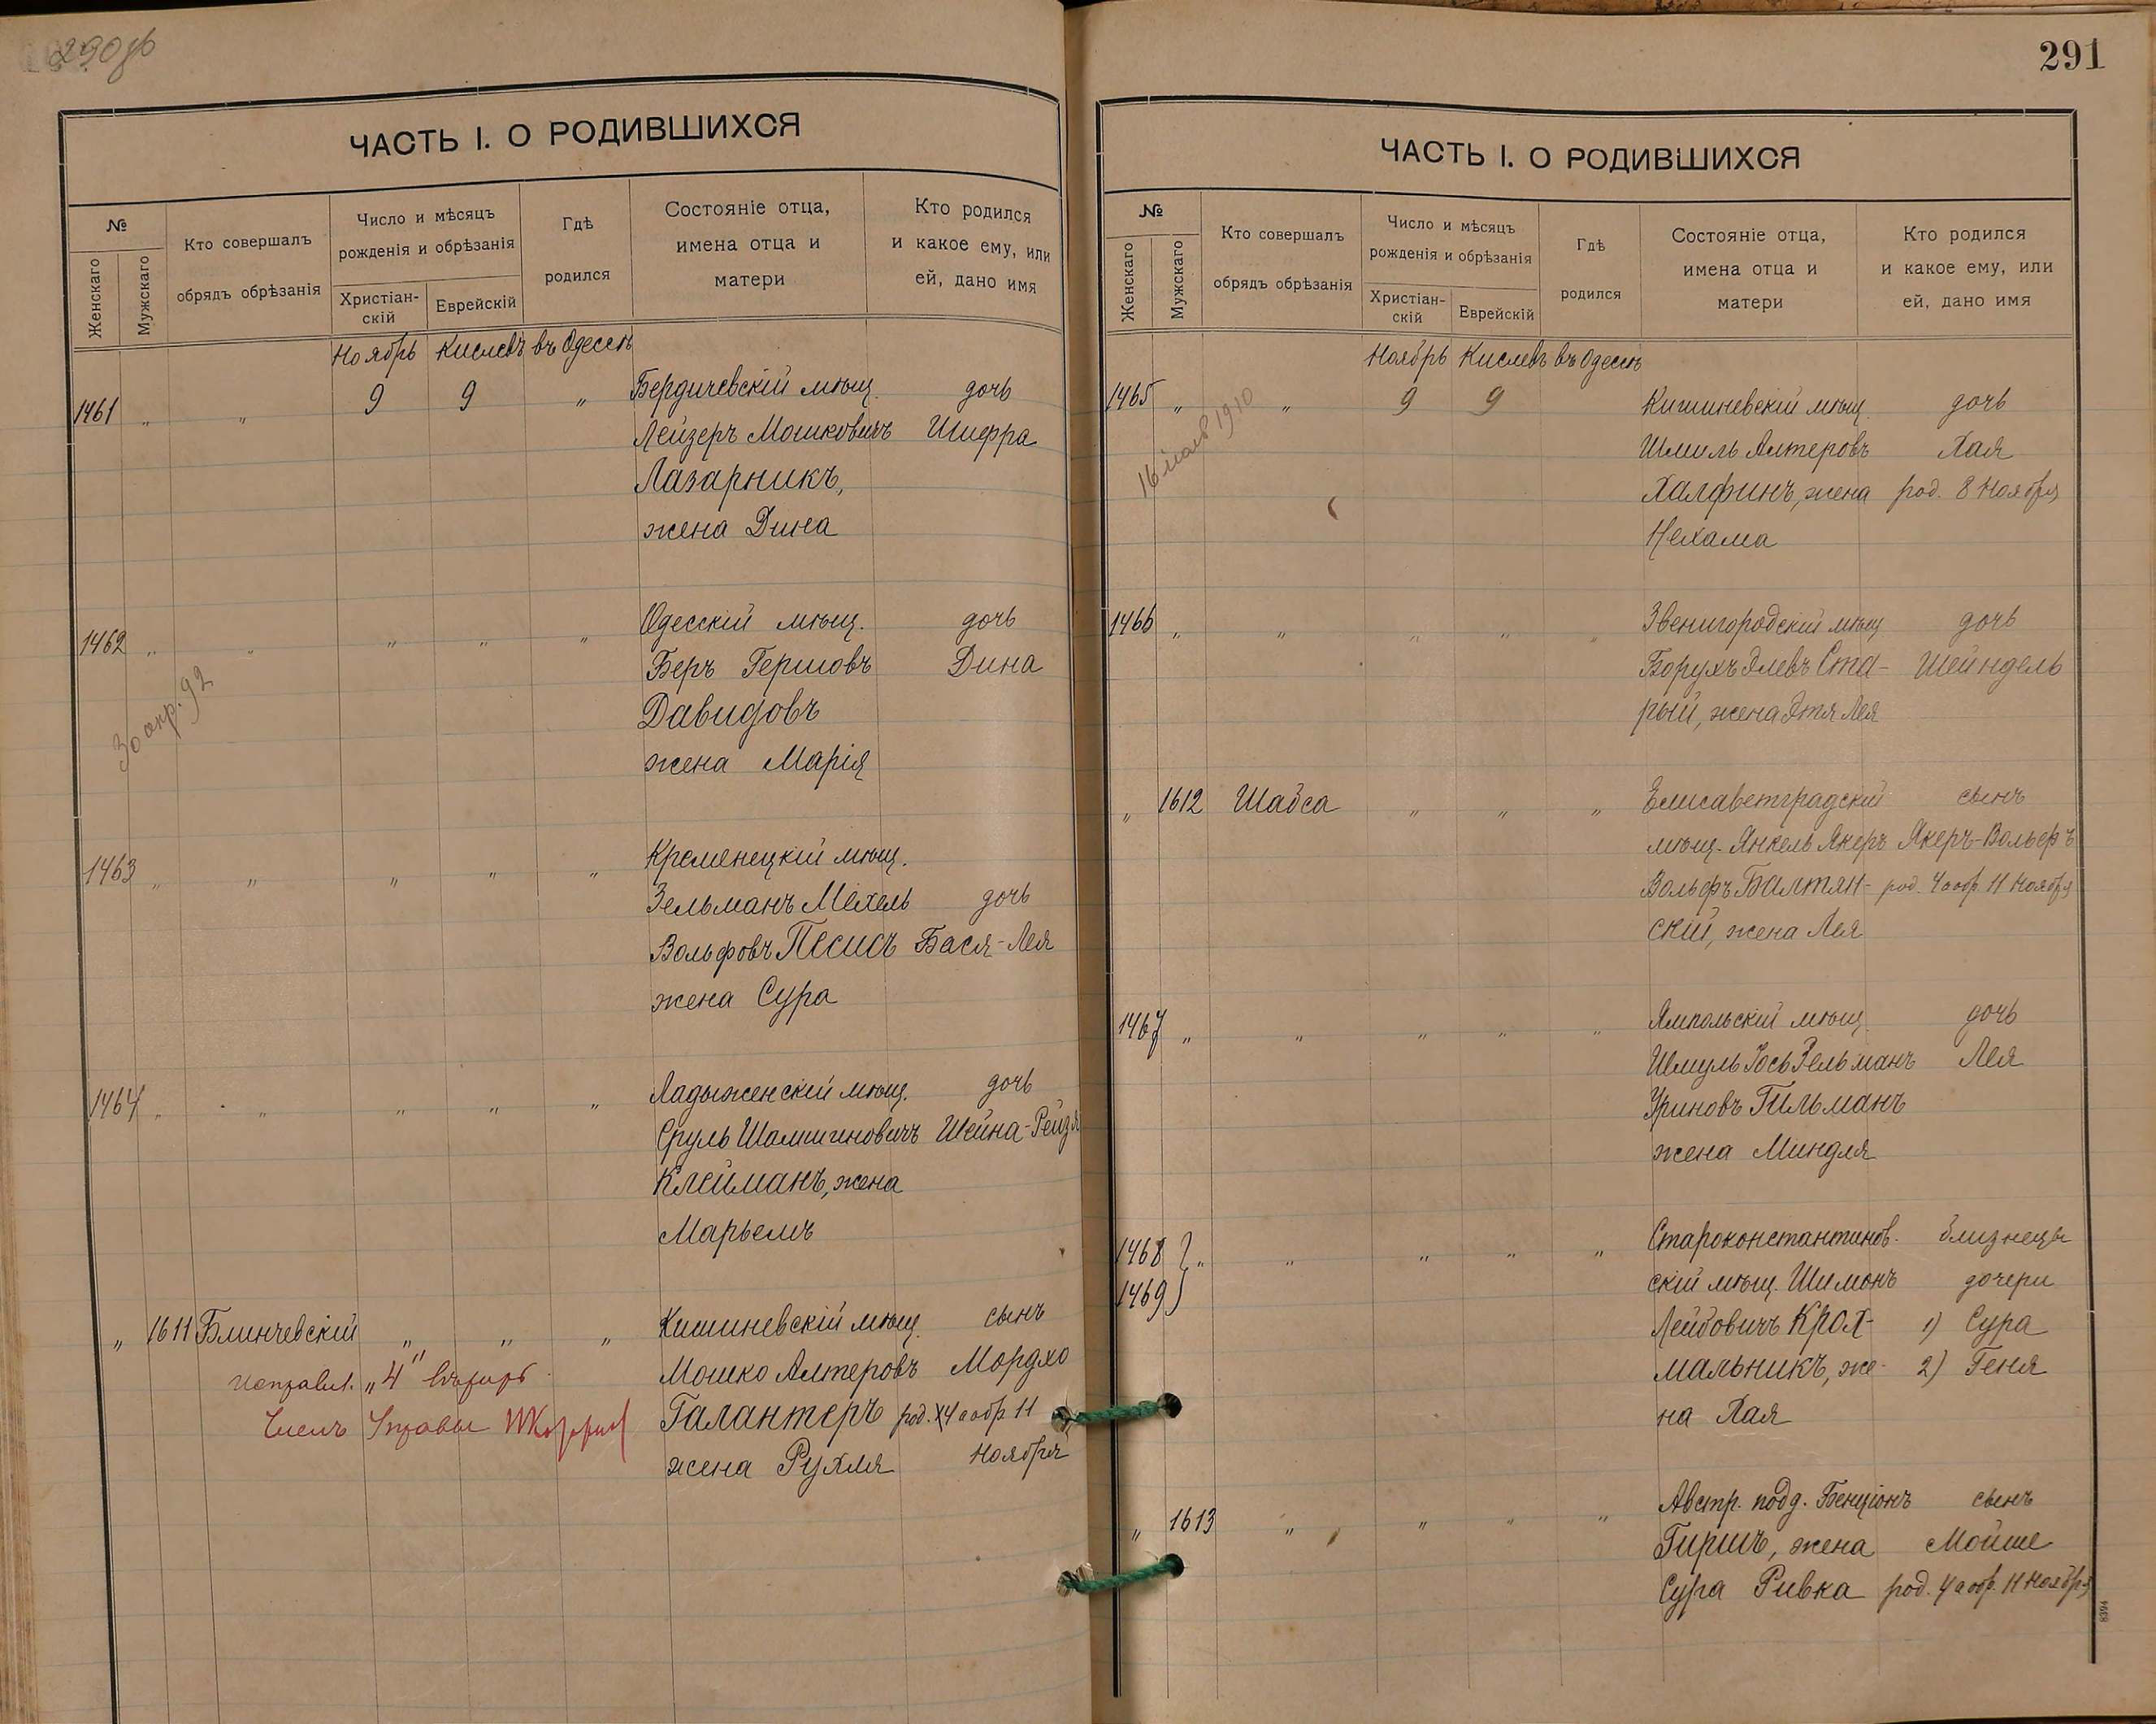 290об
ЧАСТЬ I. О РОДИВШИХСЯ
№
Женскаго
Мужскаго
Кто совершалъ
обрядъ обрѣзанія
Число и мѣсяцъ
рожденія и обрѣзанія
Христіан-
скій
Еврейскій
Гдѣ
родился
Состояніе отца,
имена отца и
матери
Кто родился
и какое ему, или
ей, дано имя
Ноябрь Кислевъ въ Одессѣ
1461 „ „ 9 9 „ Бердичевскій мѣщ. дочь
Лейзеръ Мошковичъ Шифра
Лазарникъ,
жена Дина
1462 „ „ „ „ „ Одесскій мѣщ. дочь
Беръ Гершовъ Дина
Давидовъ
жена Марія
30 апр. 92
1463 „ „ „ „ „ Кременецкій мѣщ.
Зельманъ Мехель дочь
Вольфовъ Песисъ Бася-Лея
жена Сура
1464 „ „ „ „ „ Ладыженскій мѣщ. дочь
Сруль Шамшиновичъ Шейна-Рейзя
Клейманъ, жена
Марьемъ
„ 1611 Блинчевскій „ „ „ Кишиневскій мѣщ. сынъ
Мошко Алтеровъ Мордхо
Галантеръ род. 4 а обр. 11
жена Рухля Ноября
исправл. „4"
Членъ Управы
291
ЧАСТЬ I. О РОДИВШИХСЯ
№
Женскаго
Мужскаго
Кто совершалъ
обрядъ обрѣзанія
Число и мѣсяцъ
рожденія и обрѣзанія
Христіан-
скій
Еврейскій
Гдѣ
родился
Состояніе отца,
имена отца и
матери
Кто родился
и какое ему, или
ей, дано имя
Ноябрь Кислевъ въ Одессѣ
1465 „ „ 9 9 Кишиневскій мѣщ. дочь
Шмиль Алтеровъ Хая
Халфинъ, жена род. 8 Ноября
Нехама
16 1910
1466 „ „ „ „ „ Звенигородскій мѣщ дочь
Борухъ Элевъ Ста- Шейндель
рый, жена Этя Лея
„ 1612 Шабса „ „ „ Елисаветградскій сынъ
мѣщ. Янкель Якеръ Якеръ-Вольфъ
Вольфъ Балтян- род. 4 а обр. 11 Ноября
скій, жена Лея
1467 „ „ „ „ „ Ямпольскій мѣщ. дочь
Шмуль Іось Зельманъ Лея
Уриновъ Гильманъ
жена Миндля
1468 } „ „ „ „ „ Староконстантинов- близнецы
1469 } скій мѣщ. Шимонъ дочери
Лейбовичъ Крох- 1) Сура
мальникъ, же- 2) Геня
на Хая
„ 1613 „ „ „ „ Австр. подд. Бенціонъ сынъ
Гиршъ, жена Мойше
Сура Ривка род. 4 а обр. 11 Ноября
8394